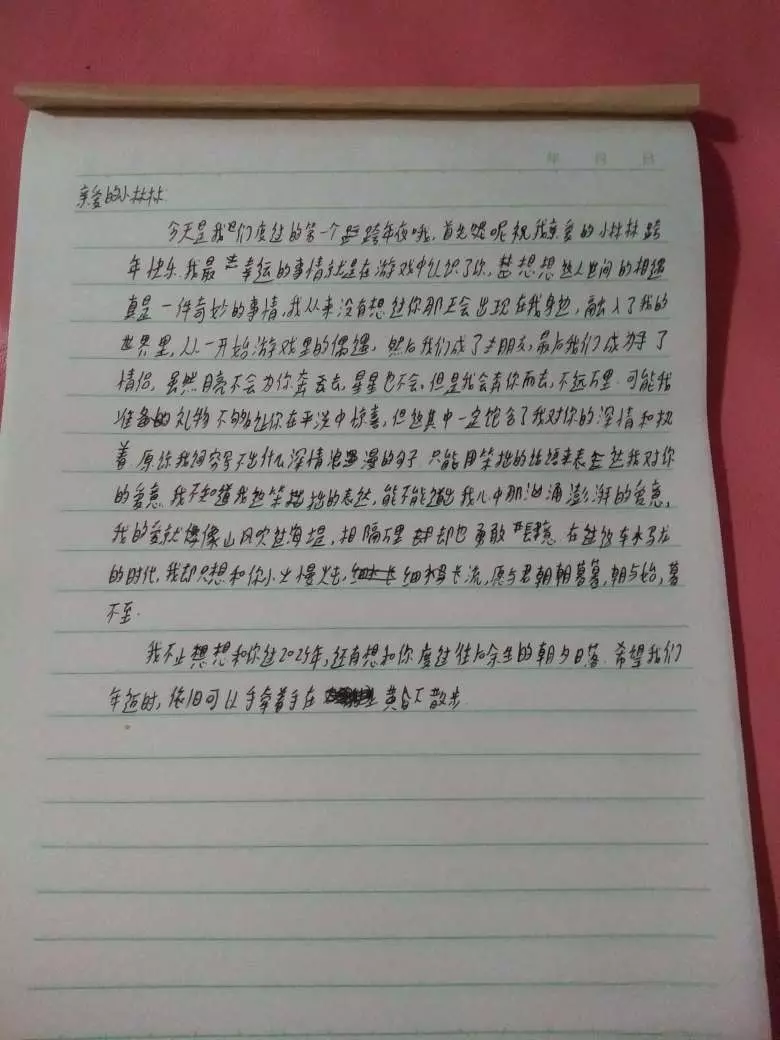 年 月 日
亲爱的小林林
今天是我们度过的第一个跨年夜哦,首先呢祝我亲爱的小林林跨
年快乐.我最幸运的事情就是在游戏中认识了你,想想人世间的相遇
真是一件奇妙的事情,我从来没有想过你那会出现在我身边,融入了我的
世界里,从一开始游戏里的偶遇,然后我们成了朋友,最后我们成为了
情侣,虽然月亮不会为你奔去,星星也不会.但是我会奔你而去,不远万里.可能我
准备的礼物不够让你在平淡中惊喜,但其中一定饱含了我对你的深情和执
着.原谅我词穷写不出什么深情浪漫的句子.只能用笨拙的话语来表达我对你
的爱意.我不知道我这笨拙的表达,能不能透出我心中那汹涌澎湃的爱意,
我的爱就像山风吹过海堤,相隔万里却也勇敢 在这饭车水马龙
的时代,我却只想和你小火慢炖,细水长流,愿与君朝朝暮暮,朝与始,暮
不至.
我不止想和你过2025年,还有想和你度过往后余生的朝夕日落.希望我们
年迈时,依旧可以手牵着手在黄昏下散步.